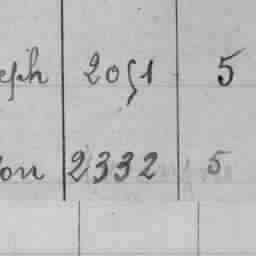 eph 2051 5
on 2332 5